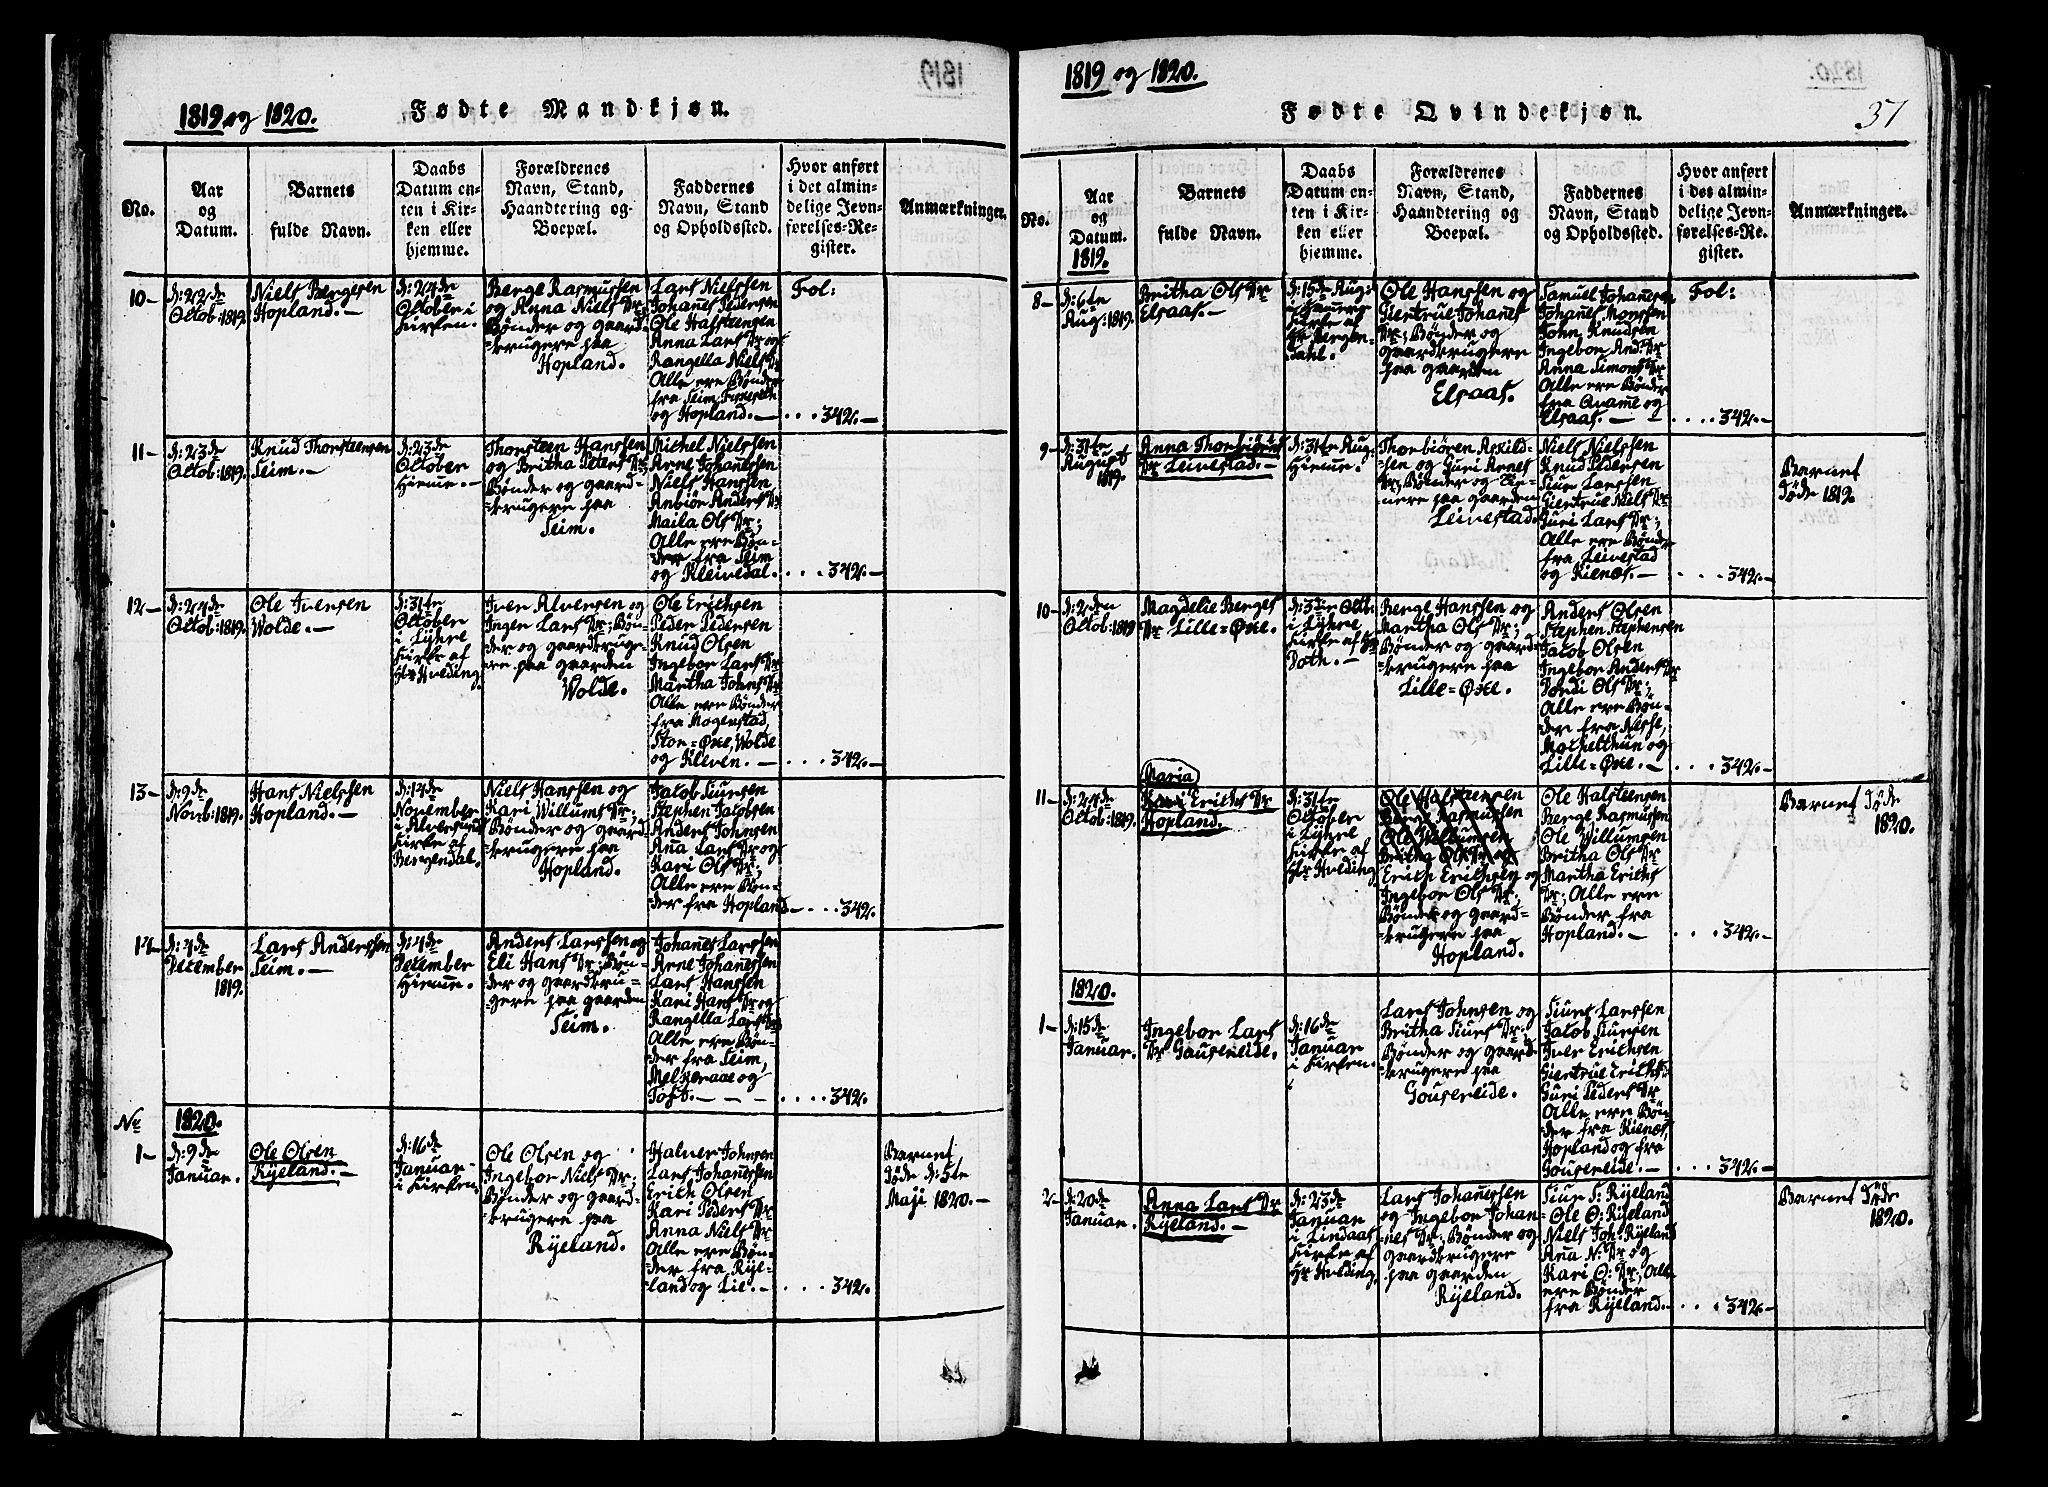 1819 og 1820. Fødte Mandkjøn.
No.
Aar
og
Datum.
Barnets
fulde Navn.
Daabs
Datum en-
ten i Kir-
ken eller
hjemme.
Forældrenes
Navn, Stand,
Haandtering og
Boepæl.
Faddernes
Navn, Stand
og Opholdssted.
Hvor anført
i det almin-
delige Jevn-
førelses-Re-
gister.
Anmærkninger.
10-
d: 22de
Octob: 1819.
Niels Bergesen
Hopland. -
d: 24de
October i
Kirken. -
Berge Rasmussen
og Anna Niels Dr:
Bønder og gaard-
=brugere paa
Hopland.
Lars Nielssen
Johanes Pedersen
Ole Halsteensen
Anna Lars Dr og
Rangella Niels Dr
Alle ere Bønder
fra Seim,
og Hopland. -
Fol:
... 342. -
11-
d: 23de
Octob: 1819.
Knud Thorsteensen
Seim. -
d: 23de
October
Hieme. -
Thorsteen Hanssen
og Britha Peters Dr;
Bønder og gaard-
=brugere paa
Seim.
Michel Nielssen
Arne Johanessen
Niels Hanssen
Anbiør Anders Dr
Maila Ols Dr;
Alle ere Bøn-
der fra Seim
og Kleivedal.
... 342. -
12-
d: 24de
Octob: 1819.
Ole Iversen
Wolde. -
d: 31te
October
i Lÿhre
Kirke af
Hr Hvlding.
Iver Alversen og
Inger Lars Dr; Bøn-
der og gaardbruge-
re paa gaarden
Wolde.
Ole Erichsen
Peder Pedersen
Knud Olsen
Ingebor Lars Dr
Martha Johns Dr
Alle ere Bønder
fra Mogenstad,
Stor=Øxe, Wolde
og Kleven. -
... 342. -
13-
d: 9de
Novb: 1819.
Hans Nielssen
Hopland. -
d: 14de
November
i Alversund
Kirke af
Bergendal.
Niels Hanssen og
Kari Willums Dr;
Bønder og gaard-
=brugere paa
Hopland.
Jacob Siursen
Stephen Jacobsen
Anders Johnsen
Ana Lars Dr og
Kari Ols Dr;
Alle ere Bøn-
der fra Hopland -
... 342.
14-
d: 4de
December
1819.
Lars Anderssen
Seim. -
d: 4de
December
Hieme. -
Anders Larssen og
Eli Hans Dr; Bøn-
der og gaardbru-
gere paa gaarden
Seim.
Johanes Larssen
Arne Johanessen
Lars Hanssen
Kari Hans Dr og
Rangella Lars Dr
Alle ere Bøn-
der fra Seim,
Melkeraae og
Toft. - - -
.... 342. -
No
1820.
1-
d: 9de
Januar.
Ole Olsen
Rÿeland. -
d: 16de
Januar
i Kirken.
Ole Olsen og
Ingebor Niels Dr;
Bønder og gaard-
=brugere paa
Rÿeland.
Halver Johnsen
Lars Johanessen
Erich Olsen
Kari Peders Dr
Anna Niels Dr
Alle ere Bøn-
=der fra Rÿe-
land og Lie. -
... 342.
Barnet
døde d: 5te
Maji 1820. -
1819 og 1820.
Fødte Qvindekjøn.
37
No.
Aar
og
Datum.
1819.
Barnets
fulde Navn.
Daabs
Datum en-
ten i Kir-
ken eller
hjemme.
Forældrenes
Navn, Stand,
Haandtering og
Boepæl.
Faddernes
Navn, Stand
og Opholdssted.
Hvor anført
i det almin-
delige Jevn-
førelses-Re-
gister.
Anmærkninger.
8-
d: 6te
Aug: 1819.
Britha Ols Dr
Elsaas. -
d: 15de Aug:
i
Kirke af
Hr Bergen-
dahl.
Ole Hanssen og
Giertrue Johanes
Dr; Bønder og
gaardbrugere
paa gaarden
Elsaas.
Samuel Johanesen
Johanes Monssen
John Knudsen
Ingebor And: Dr
Anna Simons Dr
Alle ere Bønder
fra Qvame og
Elsaas. - -
Fol:
.... 342. -
9-
d: 31te
August
1819.
Anna Thorbiørns
Dr Leivestad. -
d: 31te Aug.
Hieme. -
Thorbiøren Askild-
=sen og Guri Arnes
Dr; Bønder og
nere paa gaarden
Leivestad.
Niels Nielssen
Knud Pedersen
Siur Larssen
Giertrue Niels Dr
Guri Lars Dr;
Alle ere Bønder
fra Leivestad
og Kienes. -
... 342. -
Barnet
døde 1819.
10-
d: 2den
Octob: 1819
Magdelie Berges
Dr Lille=Øxe.
d: 3die Octb:
i Lÿhre
Kirke af Hr
Both. -
Berge Hanssen og
Martha Ols Dr;
Bønder og gaard-
=brugere paa
Lille=Øxe.
Anders Olsen
Stephen Stephensen
Jacob Olsen
Ingebor Anders Dr
Dordi Ols Dr;
Alle ere Bøn-
der fra Nesse,
og
Lille=Øxe. -
... 342. -
11-
d: 24de
Octob: 1819.
Maria
Kari Erichs Dr
Hopland.
d: 31te
October
i Lÿhre
Kirke af
Hr Hvlding
Ole Halsteensen
Berge Rasmussen
Ole Willumsen
Britha Ols Dr og
Erich Erichsen og
Ingebor Ols Dr;
Bønder og gaard-
=brugere paa
Hopland.
Ole Halsteensen
Berge Rasmussen
Ole Willumsen
Britha Ols Dr
Martha Erichs
Dr; Alle ere
Bønder fra
Hopland. -
... 342. -
Barnet døde
1820.
1820.
1-
d: 15de
Januar.
Ingebor Lars
Dr Gousereide.
d: 16de
Januar
i Kirken.
Lars Johnsen og
Britha Siurs Dr:
Bønder og gaard-
=brugere paa
Gousereide.
Siur Larssen
Jacob Siursen
Iver Erichsen
Giertrue Erichs Dr
Guri Peders Dr
Alle ere Bøn-
der fra Kienes,
Hopland og fra
Gousereide. -
... 342. -
2-
d: 20de
Januar.
Anna Lars Dr
Rÿeland. -
d: 23de
Januar
i Lindaas
Kirke af
Hr Hvlding.
Lars Johanessen
og Ingebor Johan-
nes Dr; Bønder og
gaardbrugere
paa gaarden
Rÿeland.
Siur S: Rÿeland
Ole O: Rÿeland
Niels Joh: Rÿeland
Ana N: Dr og
Kari O: Dr; Alle
ere Bønder
fra Rÿeland. -
... 342. -
Barnet døde
1820.